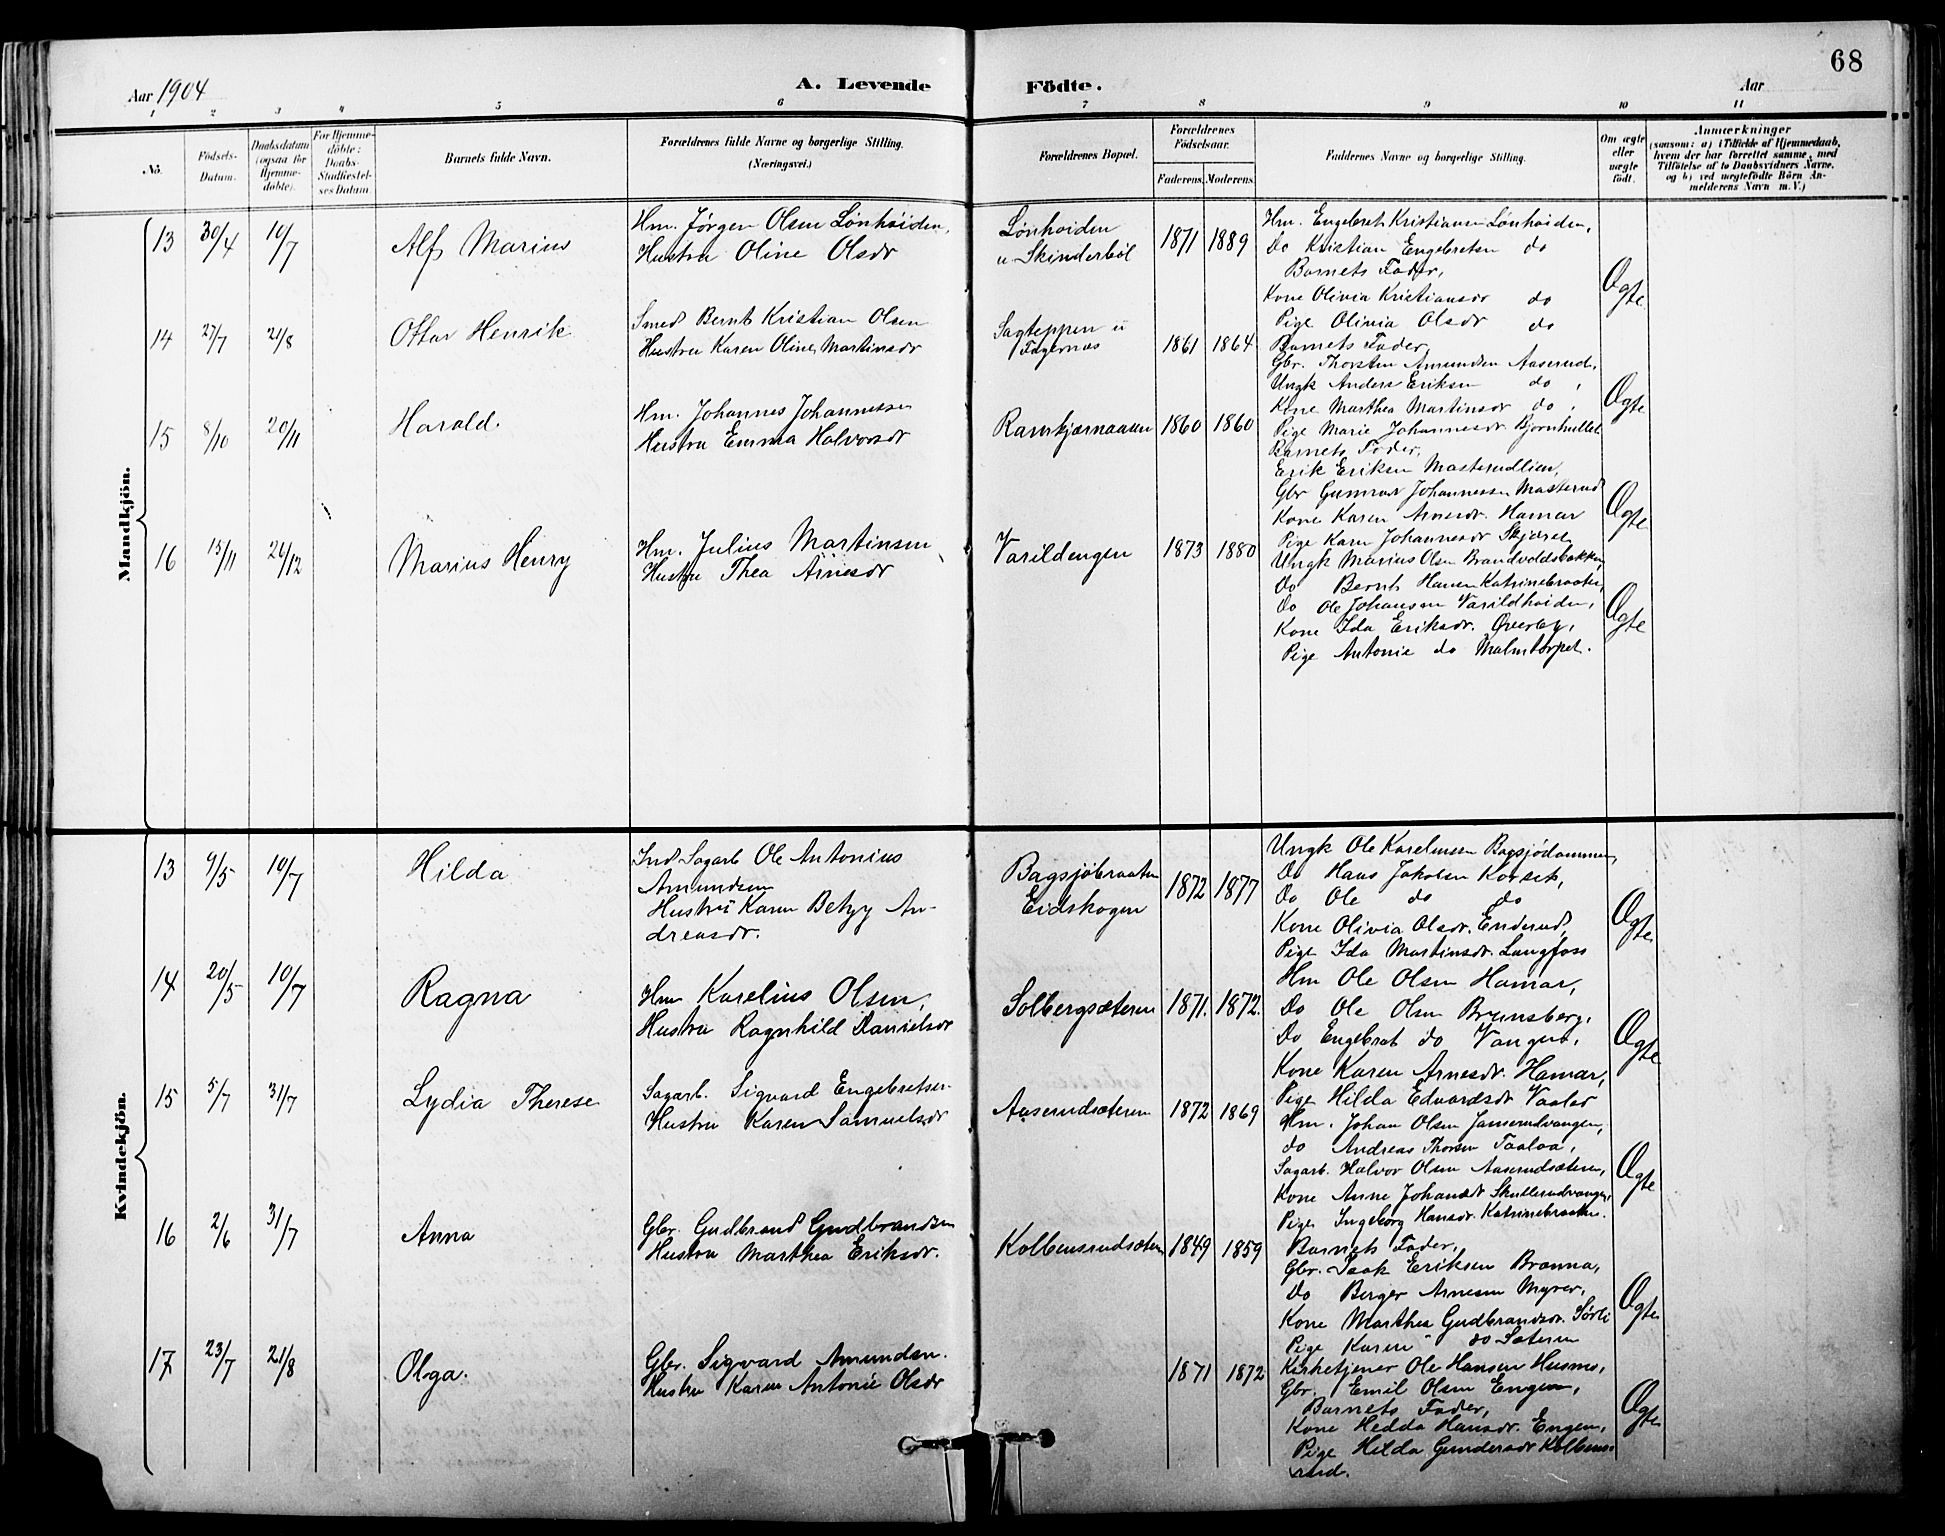 68
Aar 1904
A. Levende Födte.
Aar
1 2 3 4 5 6 7 8 9 10 11
No.
Födsels-Datum.
Daabsdatum (ogsaa for Hjemmedøbte).
For Hjemmedöbte: Daabs-Stadfæstelses Datum.
Barnets fulde Navn.
Forældrenes fulde Navne og borgerlige Stilling.
(Næringsvei.)
Forældrenes Bopæl.
Forældrenes Födselsaar.
Faderens. Moderens.
Faddernes Navne og borgerlige Stilling.
Om ægte eller uægte født.
Anmærkninger
(saasom: a) i Tilfælde af Hjemmedaab,
hvem der har forrettet samme, med
Tilföielse af to Daabsvidners Navne,
og b) ved uægtefödte Börn An-
melderens Navn m. V.)
Mandkjön.
13 30/4 10/7 Alf Marius
Hm. Jørgen Olsen Lønhöiden,
Hustru Oline Olsdr
Lønhoiden
u. Skinderböl
1871 1889
Hm. Engebret Kristiansen Lönhöiden,
Do Kristian Engebretsen do
Barnets Fader,
Kone Olivia Kristiansdr do
Pige Olivia Olsdr do
Ægte
14 27/7 21/8 Ottar Henrik
Smed Bernt Kristian Olsen
Hustru Karen Oline Martinsdr
Sagteppen u
Fagernæs
1861 1864
Barnets Fader,
Gbr. Thorsten Amundsen Aaserud,
Ungk Anders Eriksen do,
Kone Marthea Martinsdr do,
Pige Marie Johannesdr Bjornhullet
Ægte
15 8/10 20/11 Harald.
Hm. Johannes Johannessen
Hustru Emma Halvorsdr
Ramkjærnaasen
1860 1860
Barnets Fader,
Erik Eriksen Masterudlien,
Gbr Gunnar Johannessen Masterud
Kone Karen Arnesdr. Hamar
Pige Karen Johannesdr Skjæret
Ægte
16 15/11 26/12 Marius Henry
Hm. Julius Martinsen,
Hustru Thea Arnesdr
Varildengen
1873 1880
Ungk Marius Olsen Brandvoldsbakken,
Do Bernt Hansen Katrinebraaten,
Do Ole Johansen Varildhoiden,
Kone Ida Eriksdr. Øverby,
Pige Antonie do Malmtorpet.
Ægte
Kvindekjön.
13 9/5 10/7 Hilda
Ind Sagarb Ole Antonius
Amundsen
Hustru Karen Betzy An-
dreasdr.
Bagsjöbraaten
Eidskogen
1872 1877
Ungk Ole Karelussen Bagsjödammen,
Do Hans Jakobsen Korset,
Do Ole do do
Kone Olivia Olsdr. Enderud,
Pige Ida Martinsdr. Langfoss
Ægte
14 20/5 10/7 Ragna
Hm Karelius Olsen,
Hustru Ragnhild Danielsdr
Solbergsæteren
1871. 1872.
Hm Ole Olsen Hamar,
Do Ole Olsen Brunsberg,
Do Engebret do Vangen,
Kone Karen Arnesdr. Hamar,
Pige Hilda Edvardsdr Vaaler
Ægte
15 5/7 31/7 Lydia Therese
Sagarb. Sigvard Engebretsen
Hustru Karen Samuelsdr
Aaserudsæteren
1872 1869
Hm. Johan Olsen Janserudvangen,
do Andreas Thorsen Taaloa,
Sagarb. Halvor Olsen Aaserudsæteren,
Kone Anne Johansdr Skullerudvangen,
Pige Ingeborg Hansdr. Katrinebraaten.
Ægte
16 2/6 31/7 Anna
Gbr. Gudbrand Gudbrandsen
Hustru Marthea Eriksdr.
Kolbensrudsæteren
1849 1859
Barnets Fader,
Gbr. Isak Eriksen Branna,
Do Berger Arnesen Myrer,
Kone Marthea Gudbrandsdr. Sörli
Pige Karen " do Sæteren
Ægte
17 23/7 21/8 Olga.
Gbr. Sigvard Amundsen.
Hustru Karen Antonie Olsdr
1871 1872
Kirketjener Ole Hansen Husmo,
Gbr. Emil Olsen Engen,
Barnets Fader,
Kone Hedda Hansdr. Engen,
Pige Hilda Gundersdr Kolbens-
rud.
Ægte